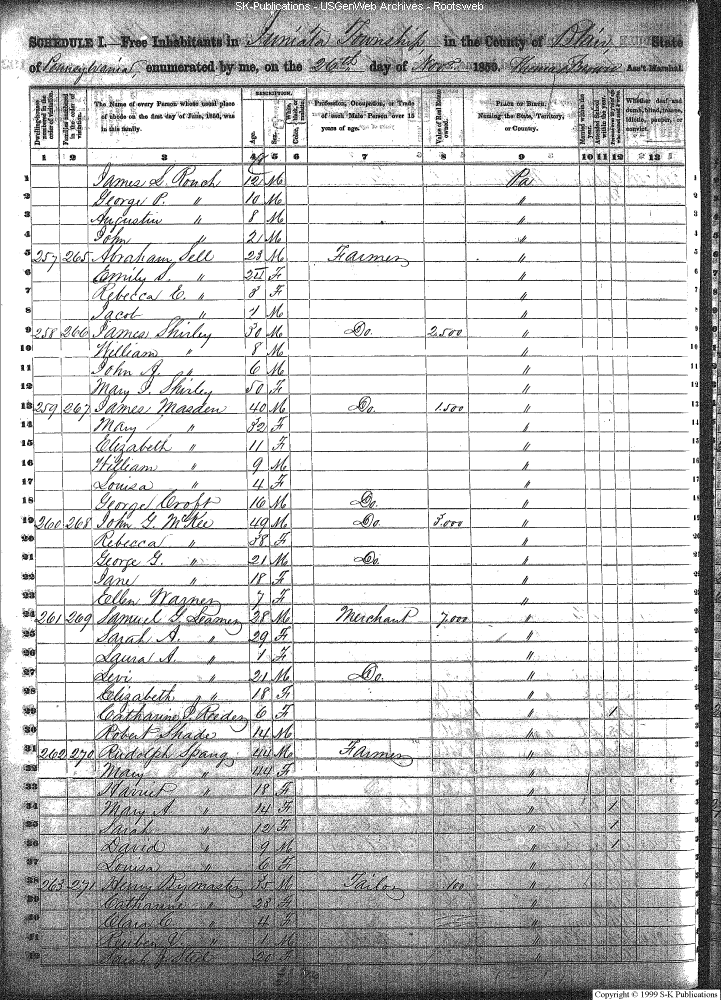 SK-Publications - USGenWeb Archives - Rootsweb
SCHEDULE I.—Free Inhabitants in Juniata Township, in the County of Blair, State
of Pennsylvania, enumerated by me, on the 26th day of Novr. 1850. Ass't Marshal.
Dwelling-houses numbered in the order of visitation.
Families numbered in the order of visitation.
The Name of every Person whose usual place of abode on the first day of June, 1850, was in this family.
DESCRIPTION.
Age.
Sex.
White, black, or mulatto.
Profession, Occupation, or Trade of each Male Person over 15 years of age.
Value of Real Estate owned.
Place of Birth. Naming the State, Territory, or Country.
Married within the year.
Attended School within the year.
Whether deaf and dumb, blind, insane, idiotic, pauper, or convict.
1 2 3 4 5 6 7 8 9 10 11 12 13
1 James S. Rouch 12 M Pa 1
2 George P. " 10 M " 2
3 Augustin " 8 M " 3
4 John " 2 M " 4
5 257 265 Abraham Sell 23 M Farmer " 5
6 Emily S. " 24 F " 6
7 Rebecca E. " 3 F " 7
8 Jacob " 1 M " 8
9 258 266 James Shirley 30 M Do. 2.500 " 9
10 William " 8 M " 10
11 John A. " 6 M " 11
12 Mary J. Shirley 50 F " 12
13 259 267 James Masden 40 M Do. 1.500 " 13
14 Mary " 32 F " 14
15 Elizabeth " 11 F " 15
16 William " 9 M " 16
17 Louisa " 4 F " 17
18 George Croft 16 M Do. " 18
19 260 268 John G. McKee 49 M Do. 3.000 " 19
20 Rebecca " 38 F " 20
21 George G. " 21 M Do. " 21
22 Jane " 18 F " 22
23 Ellen Warner 7 F " 23
24 261 269 Samuel G. Leamer 28 M Merchant 7.000 " 24
25 Sarah A. " 29 F " 25
26 Laura A. " 1 F " 26
27 Levi " 21 M Do. " 27
28 Elizabeth " 18 F " 28
29 Catharine P. 6 F " 1 29
30 Robert Shade 14 M " 30
31 262 270 Rudolph Spang 44 M Farmer " 31
32 Mary " 44 F " 32
33 Harriet " 18 F " 33
34 Mary A. " 14 F " 1 34
35 Sarah " 12 F " 1 35
36 David " 9 M " 1 36
37 Louisa " 6 F " 37
38 263 271 Henry Bymaster 35 M Tailor 100 " 38
39 Catharine " 28 F " 39
40 Clara C. " 4 F " 40
41 Reuben V. " 1 M " 41
42 Sarah J. 20 F " 42
Copyright © 1999 S-K Publications